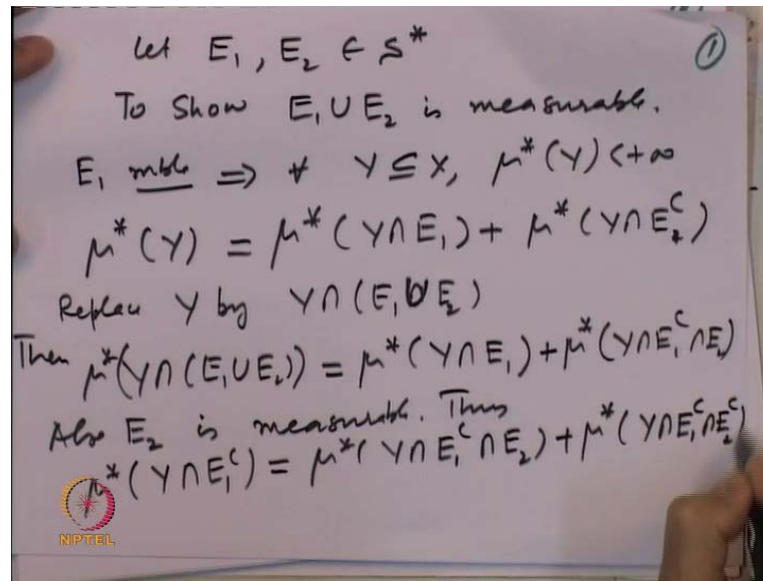 Let E₁, E₂ ∈ S* ①
To Show E₁ ∪ E₂ is measurable.
E₁ mble ⇒ ∀ Y ⊆ X, μ*(Y) < +∞
μ*(Y) = μ*(Y ∩ E₁) + μ*(Y ∩ E₂ᶜ)
Replace Y by Y ∩ (E₁ ∪ E₂)
Then μ*(Y ∩ (E₁ ∪ E₂)) = μ*(Y ∩ E₁) + μ*(Y ∩ E₁ᶜ ∩ E₂)
Also E₂ is measurable. Thus
μ*(Y ∩ E₁ᶜ) = μ*(Y ∩ E₁ᶜ ∩ E₂) + μ*(Y ∩ E₁ᶜ ∩ E₂ᶜ)
NPTEL